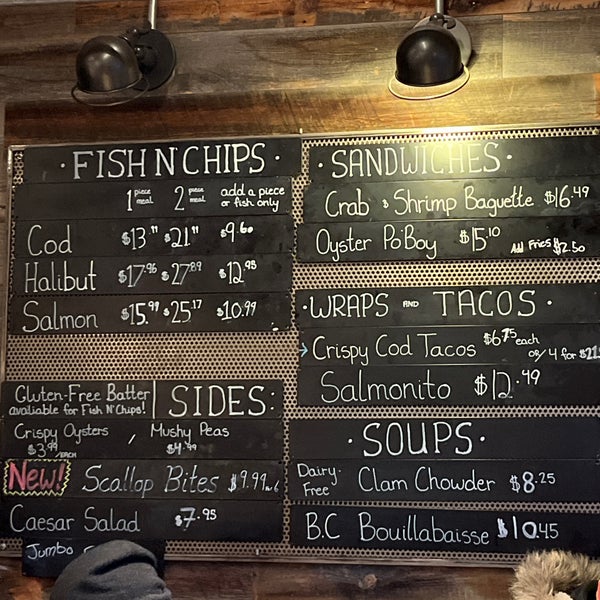 · FISH N' CHIPS ·
1 piece meal 2 piece meal add a piece or fish only
Cod $13.11 $21.11 $9.60
Halibut $17.96 $27.89 $12.98
Salmon $15.99 $25.17 $10.99
Gluten-Free Batter
avaliable for Fish N' Chips!
SIDES:
Crispy Oysters / Mushy Peas
$3.99/EACH $4.99
New! Scallop Bites $9.99
Caesar Salad $7.95
Jumbo
· SANDWICHES ·
Crab & Shrimp Baguette $16.49
Oyster Po'Boy $15.10 Add Fries $2.50
· WRAPS AND TACOS ·
Crispy Cod Tacos $6.75 each
or/ 4 for
Salmonito $12.49
· SOUPS ·
Dairy-Free Clam Chowder $8.25
B.C Bouillabaisse $10.45